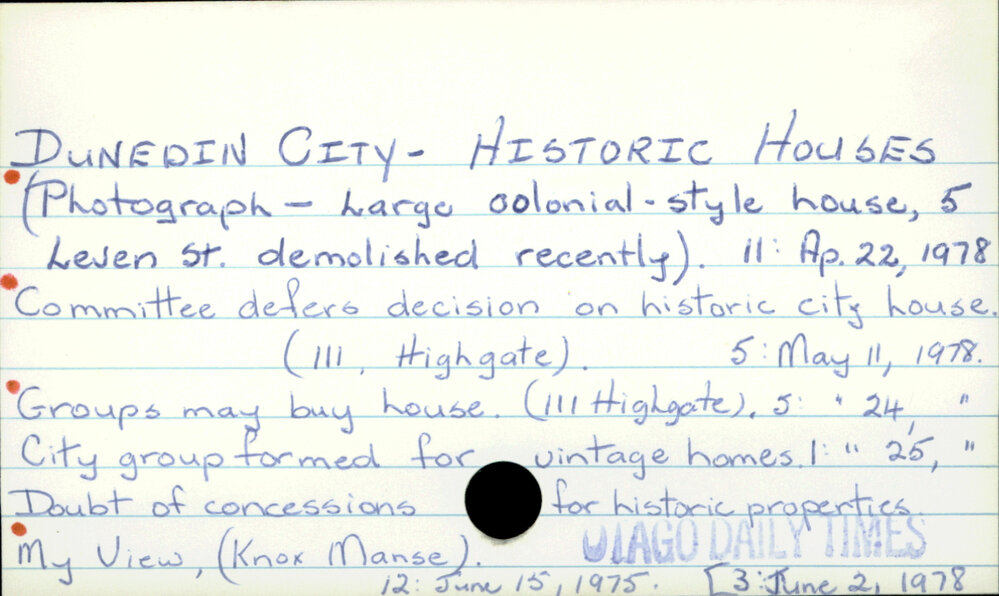 DUNEDIN CITY- HISTORIC HOUSES
(Photograph - Large colonial-style house, 5
Leven St. demolished recently). 11: Ap. 22, 1978
Committee defers decision on historic city house.
(111, Highgate). 5: May 11, 1978.
Groups may buy house. (111 Highgate). 5: " 24, "
City group formed for vintage homes. 1: " 25, "
Doubt of concessions for historic properties.
OTAGO DAILY TIMES
My View, (Knox Manse).
12: June 15, 1975. [3: June 2, 1978